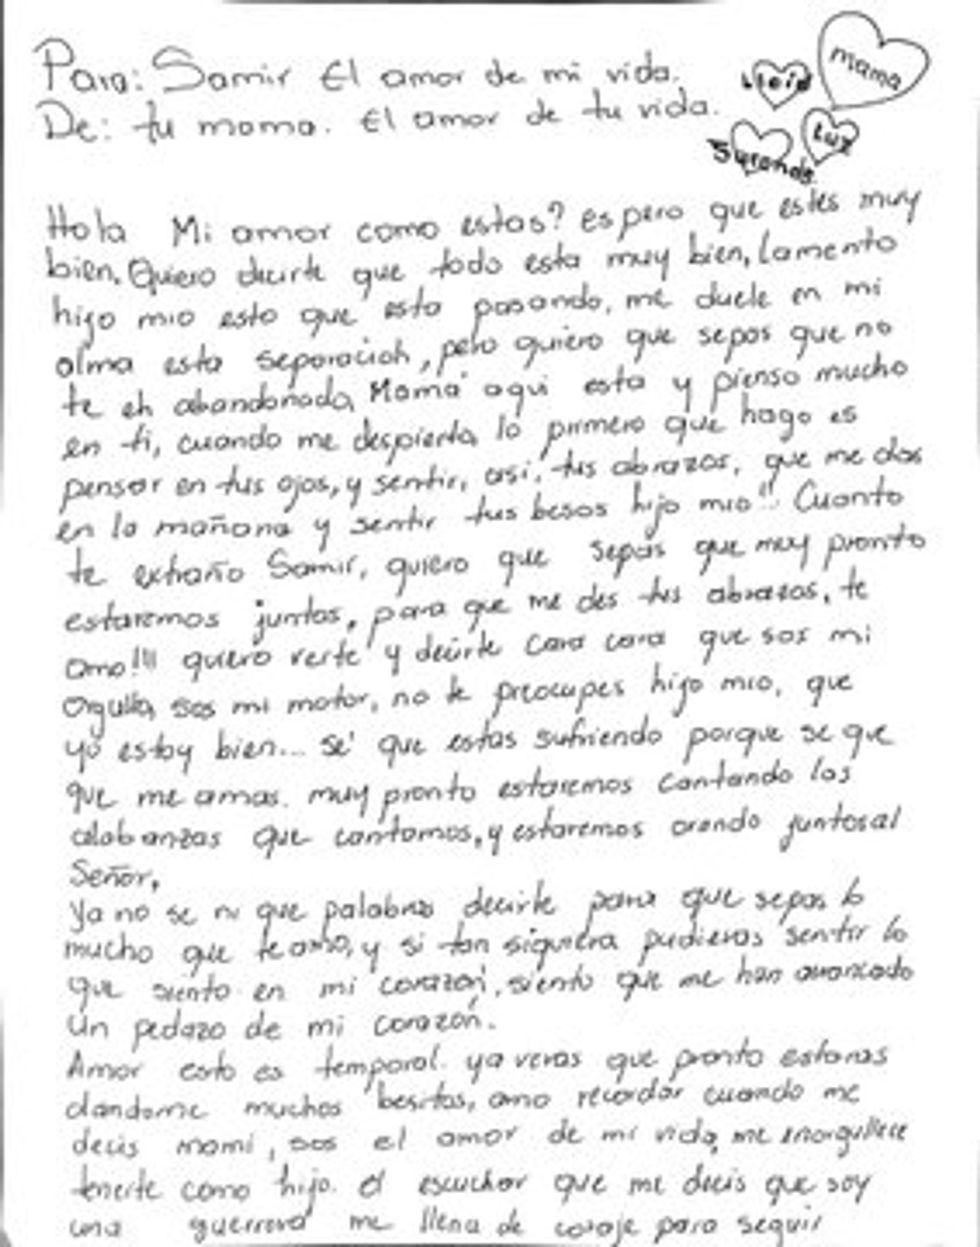 Para: Samir El amor de mi vida.
De: tu mama. El amor de tu vida.
mama
Lluz
Hola Mi amor como estas? espero que estés muy
bien, Quiero decirte que todo esta muy bien, Lamento
hijo mio esto que esta pasando, me duele en mi
alma esta separación, pero quiero que sepas que no
te eh abandonado, Mamá aqui esta y pienso mucho
en ti, cuando me despierto lo primero que hago es
pensar en tus ojos, y sentir, asi, tus abrazos, que me das
en la mañana y sentir tus besos hijo mio!! Cuanto
te extraño Samir, quiero que sepas que muy pronto
estaremos juntos, para que me des tus abrazos, te
amo!!! quiero verte y decirte cara cara que sos mi
orgullo, sos mi motor, no te preocupes hijo mio, que
yo estoy bien... sé que estas sufriendo porque se que
que me amas. muy pronto estaremos cantando las
alabanzas que cantamos, y estaremos orando juntos al
Señor,
Ya no se ni que palabras decirte para que sepas lo
mucho que te amo, y si tan siquiera pudieras sentir lo
que siento en mi corazón, siento que me han arrancado
un pedazo de mi corazón.
Amor esto es temporal. ya veras que pronto estaras
dandome muchos besitos, amo recordar cuando me
decis mami, sos el amor de mi vida, me enorgullece
tenerte como hijo. el escuchar que me decis que soy
una guerrera me llena de coraje para seguir